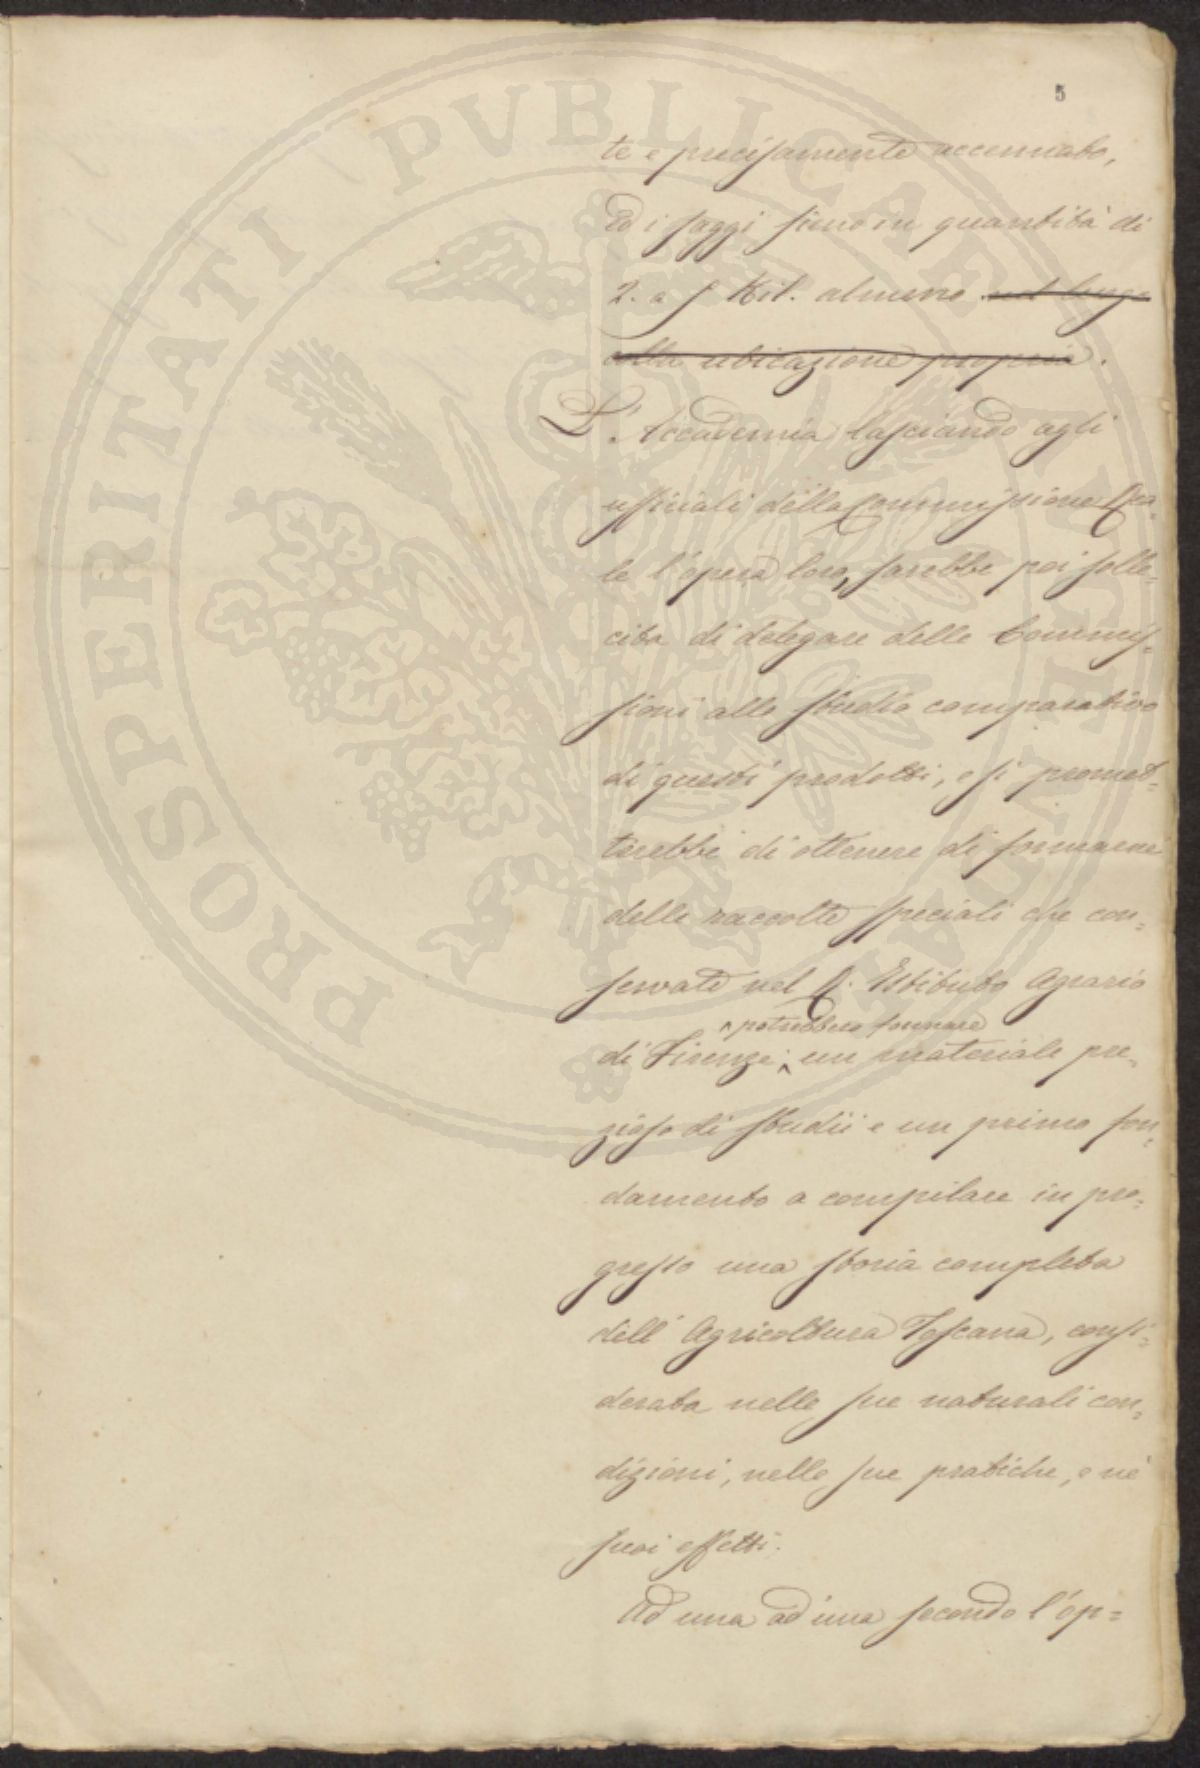 5
te e precisamente accennato,
ed i saggi sieno in quantità di
2. a 5 Kil. almeno
ubicazione propria.
L'Accademia lasciando agli
ufficiali della Commissione Rea-
le l'opera loro, sarebbe poi solle-
cita di delegare delle Commis-
sioni allo studio comparativo
di questi prodotti, e si promet-
terebbe di ottenere di formarne
delle raccolte speciali che con-
servate nel R. Istituto Agrario
potrebbero formare
di Firenze; un materiale pre-
zioso di studii e un primo fon-
damento a compilare in pro-
gresso una storia completa
dell'Agricoltura Toscana, consi-
derata nelle sue naturali con-
dizioni, nelle sue pratiche, e ne'
suoi effetti.
Ad una ad una secondo l'op=
PROSPERITATI PVBLICAE AVGENDAE